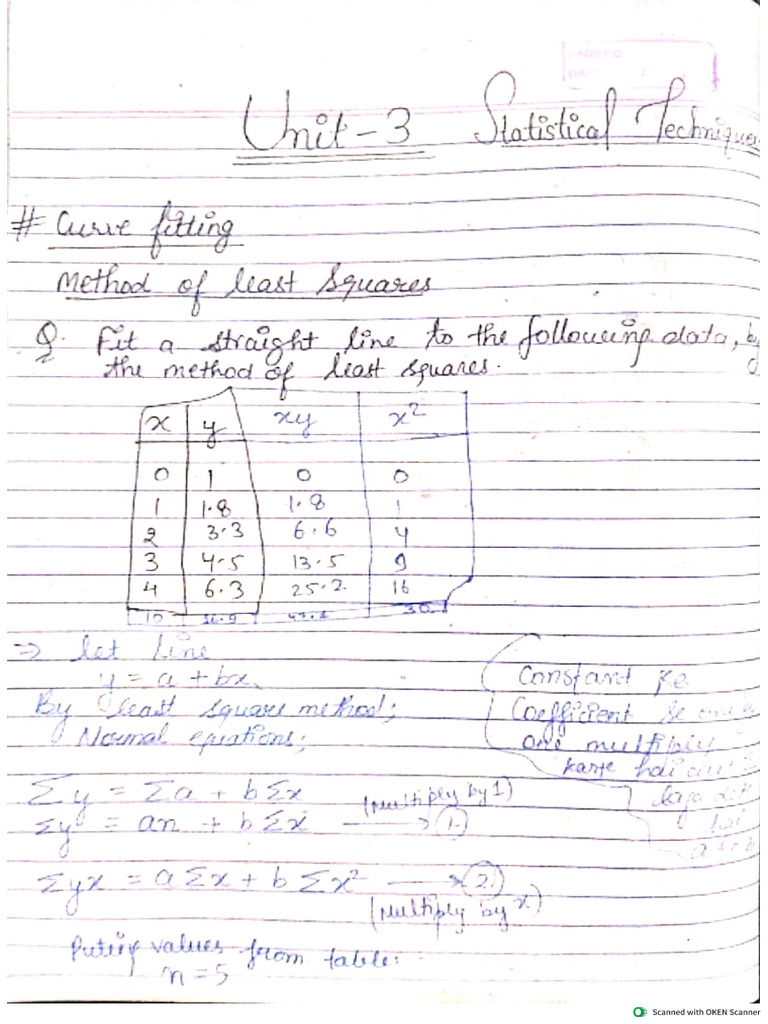 Unit-3 Statistical Techniques
# Curve fitting
Method of least Squares
Q. Fit a straight line to the following data, by
the method of least squares.
x y xy x²
0 1 0 0
1 1.8 1.8 1
2 3.3 6.6 4
3 4.5 13.5 9
4 6.3 25.2 16
10 16.9 47.1 30
⇒ let line
y = a + bx
By least square method;
Normal equations;
Constant ke
Coefficient se one by
one multiply
karte hai aur
Σy = Σa + bΣx
(Multiply by 1)
Σy = an + bΣx → (1.)
Σyx = aΣx + bΣx² → (2.)
(Multiply by x)
Puting values from table:
n = 5
Scanned with OKEN Scanner